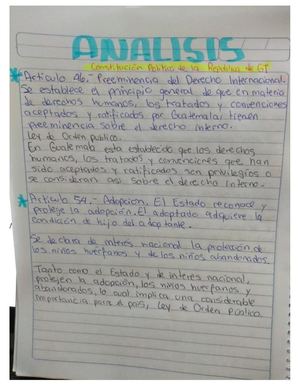 ANALISIS
Constitución Política de la República de GT
* Artículo 46.- Preeminencia del Derecho Internacional.
Se establece el principio general de que en materia
de derechos humanos, los tratados y convenciones
aceptados y ratificados por Guatemala, tienen
preeminencia sobre el derecho interno.
Ley de Orden público.
En Guatemala esta establecido que los derechos
humanos, los tratados y convenciones que han
sido aceptados y ratificados son privilegios o
se consideran asi sobre el derecho interno.
* Artículo 54.- Adopción. El Estado reconoce y
proteje la adopción. El adoptado adquiere la
condición de hijo del adoptante.
Se declara de interés nacional la protección de
los niños huerfanos y de los niños abandonados.
Tanto como el Estado y de interés nacional,
protejen la adopción, los niños huerfanos y
abandonados, lo cual implica una considerable
importancia para el país, Ley de Orden Público.